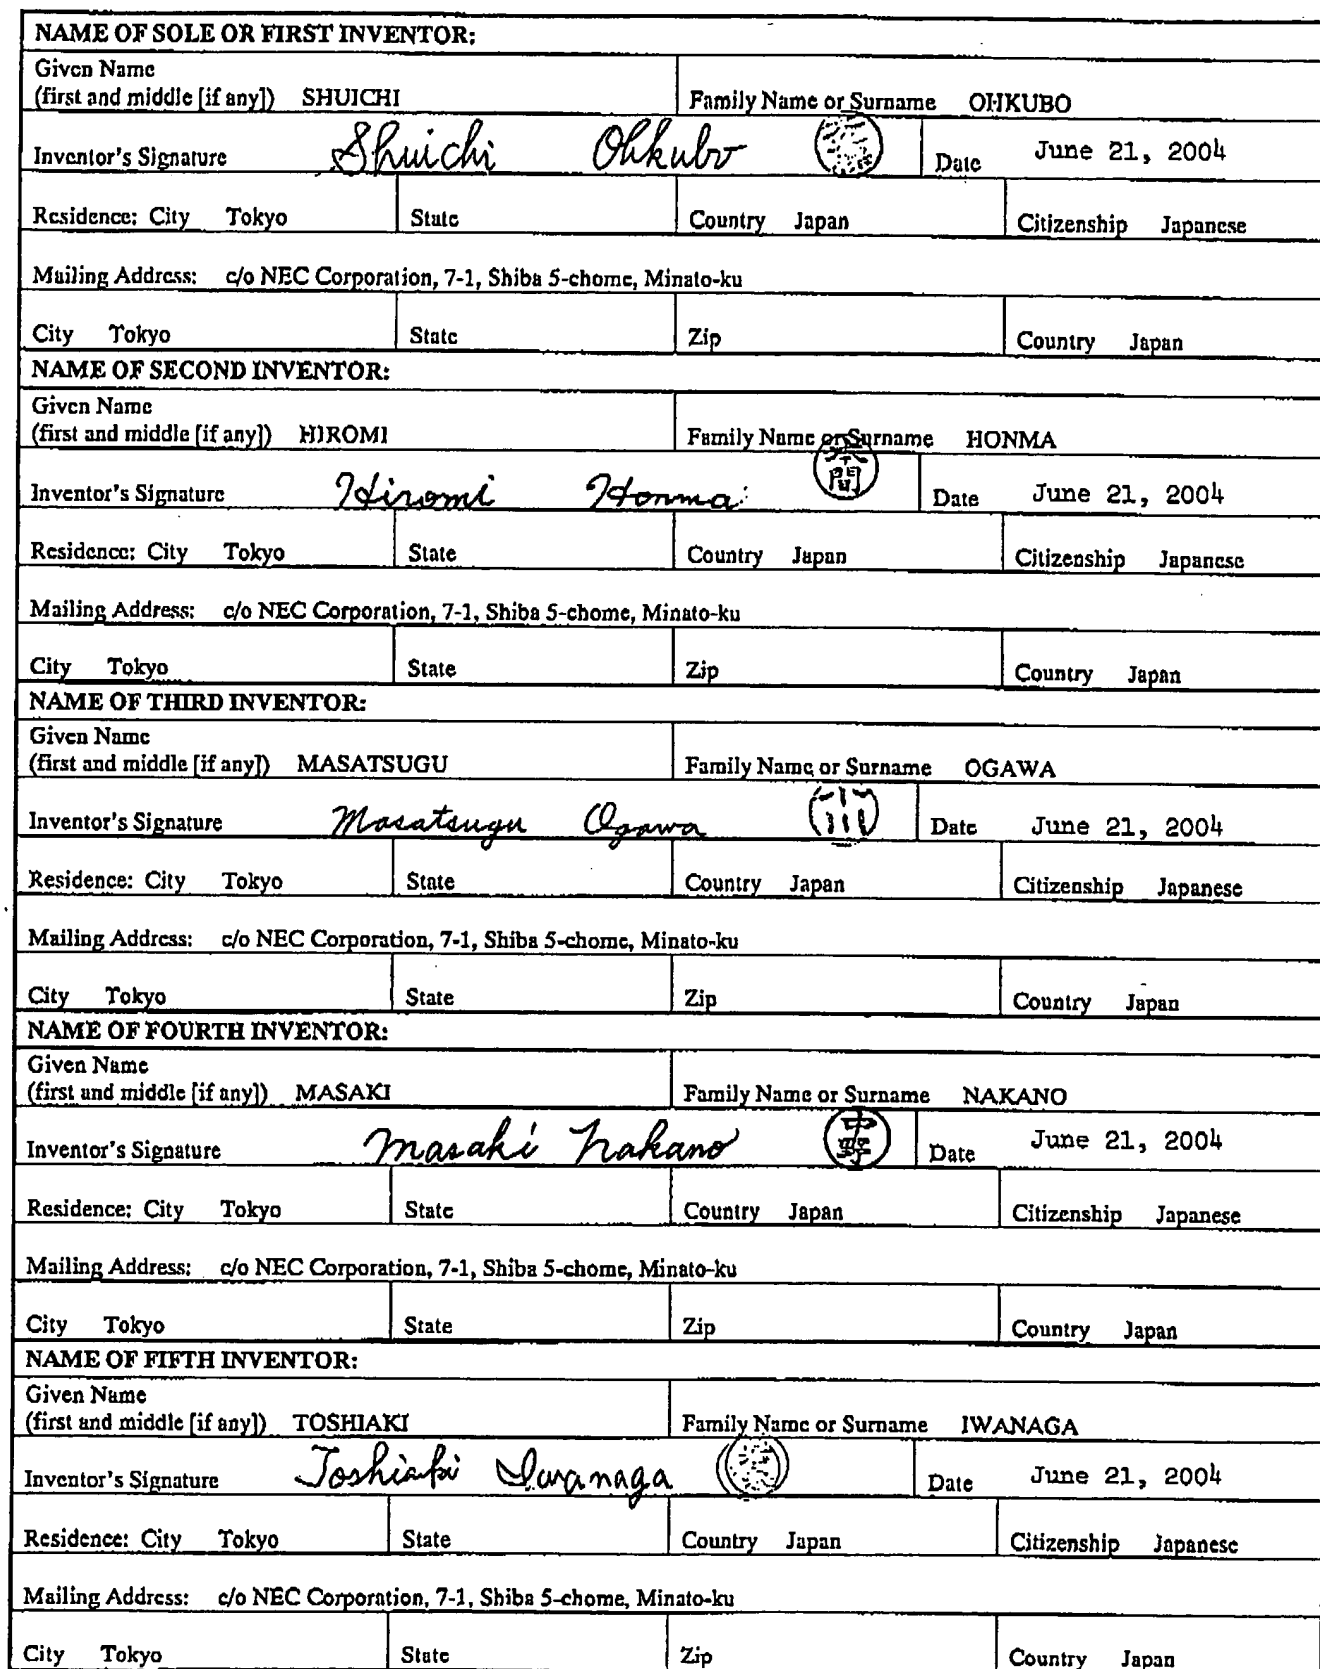 NAME OF SOLE OR FIRST INVENTOR:
Given Name
(first and middle [if any]) SHUICHI Family Name or Surname OHKUBO
Inventor's Signature Shuichi Ohkubo Date June 21, 2004
Residence: City Tokyo State Country Japan Citizenship Japanese
Mailing Address: c/o NEC Corporation, 7-1, Shiba 5-chome, Minato-ku
City Tokyo State Zip Country Japan
NAME OF SECOND INVENTOR:
Given Name
(first and middle [if any]) HIROMI Family Name or Surname HONMA
Inventor's Signature Hiromi Honma 本間 Date June 21, 2004
Residence: City Tokyo State Country Japan Citizenship Japanese
Mailing Address: c/o NEC Corporation, 7-1, Shiba 5-chome, Minato-ku
City Tokyo State Zip Country Japan
NAME OF THIRD INVENTOR:
Given Name
(first and middle [if any]) MASATSUGU Family Name or Surname OGAWA
Inventor's Signature Masatsugu Ogawa 小川 Date June 21, 2004
Residence: City Tokyo State Country Japan Citizenship Japanese
Mailing Address: c/o NEC Corporation, 7-1, Shiba 5-chome, Minato-ku
City Tokyo State Zip Country Japan
NAME OF FOURTH INVENTOR:
Given Name
(first and middle [if any]) MASAKI Family Name or Surname NAKANO
Inventor's Signature Masaki Nakano 中野 Date June 21, 2004
Residence: City Tokyo State Country Japan Citizenship Japanese
Mailing Address: c/o NEC Corporation, 7-1, Shiba 5-chome, Minato-ku
City Tokyo State Zip Country Japan
NAME OF FIFTH INVENTOR:
Given Name
(first and middle [if any]) TOSHIAKI Family Name or Surname IWANAGA
Inventor's Signature Toshiaki Iwanaga Date June 21, 2004
Residence: City Tokyo State Country Japan Citizenship Japanese
Mailing Address: c/o NEC Corporation, 7-1, Shiba 5-chome, Minato-ku
City Tokyo State Zip Country Japan